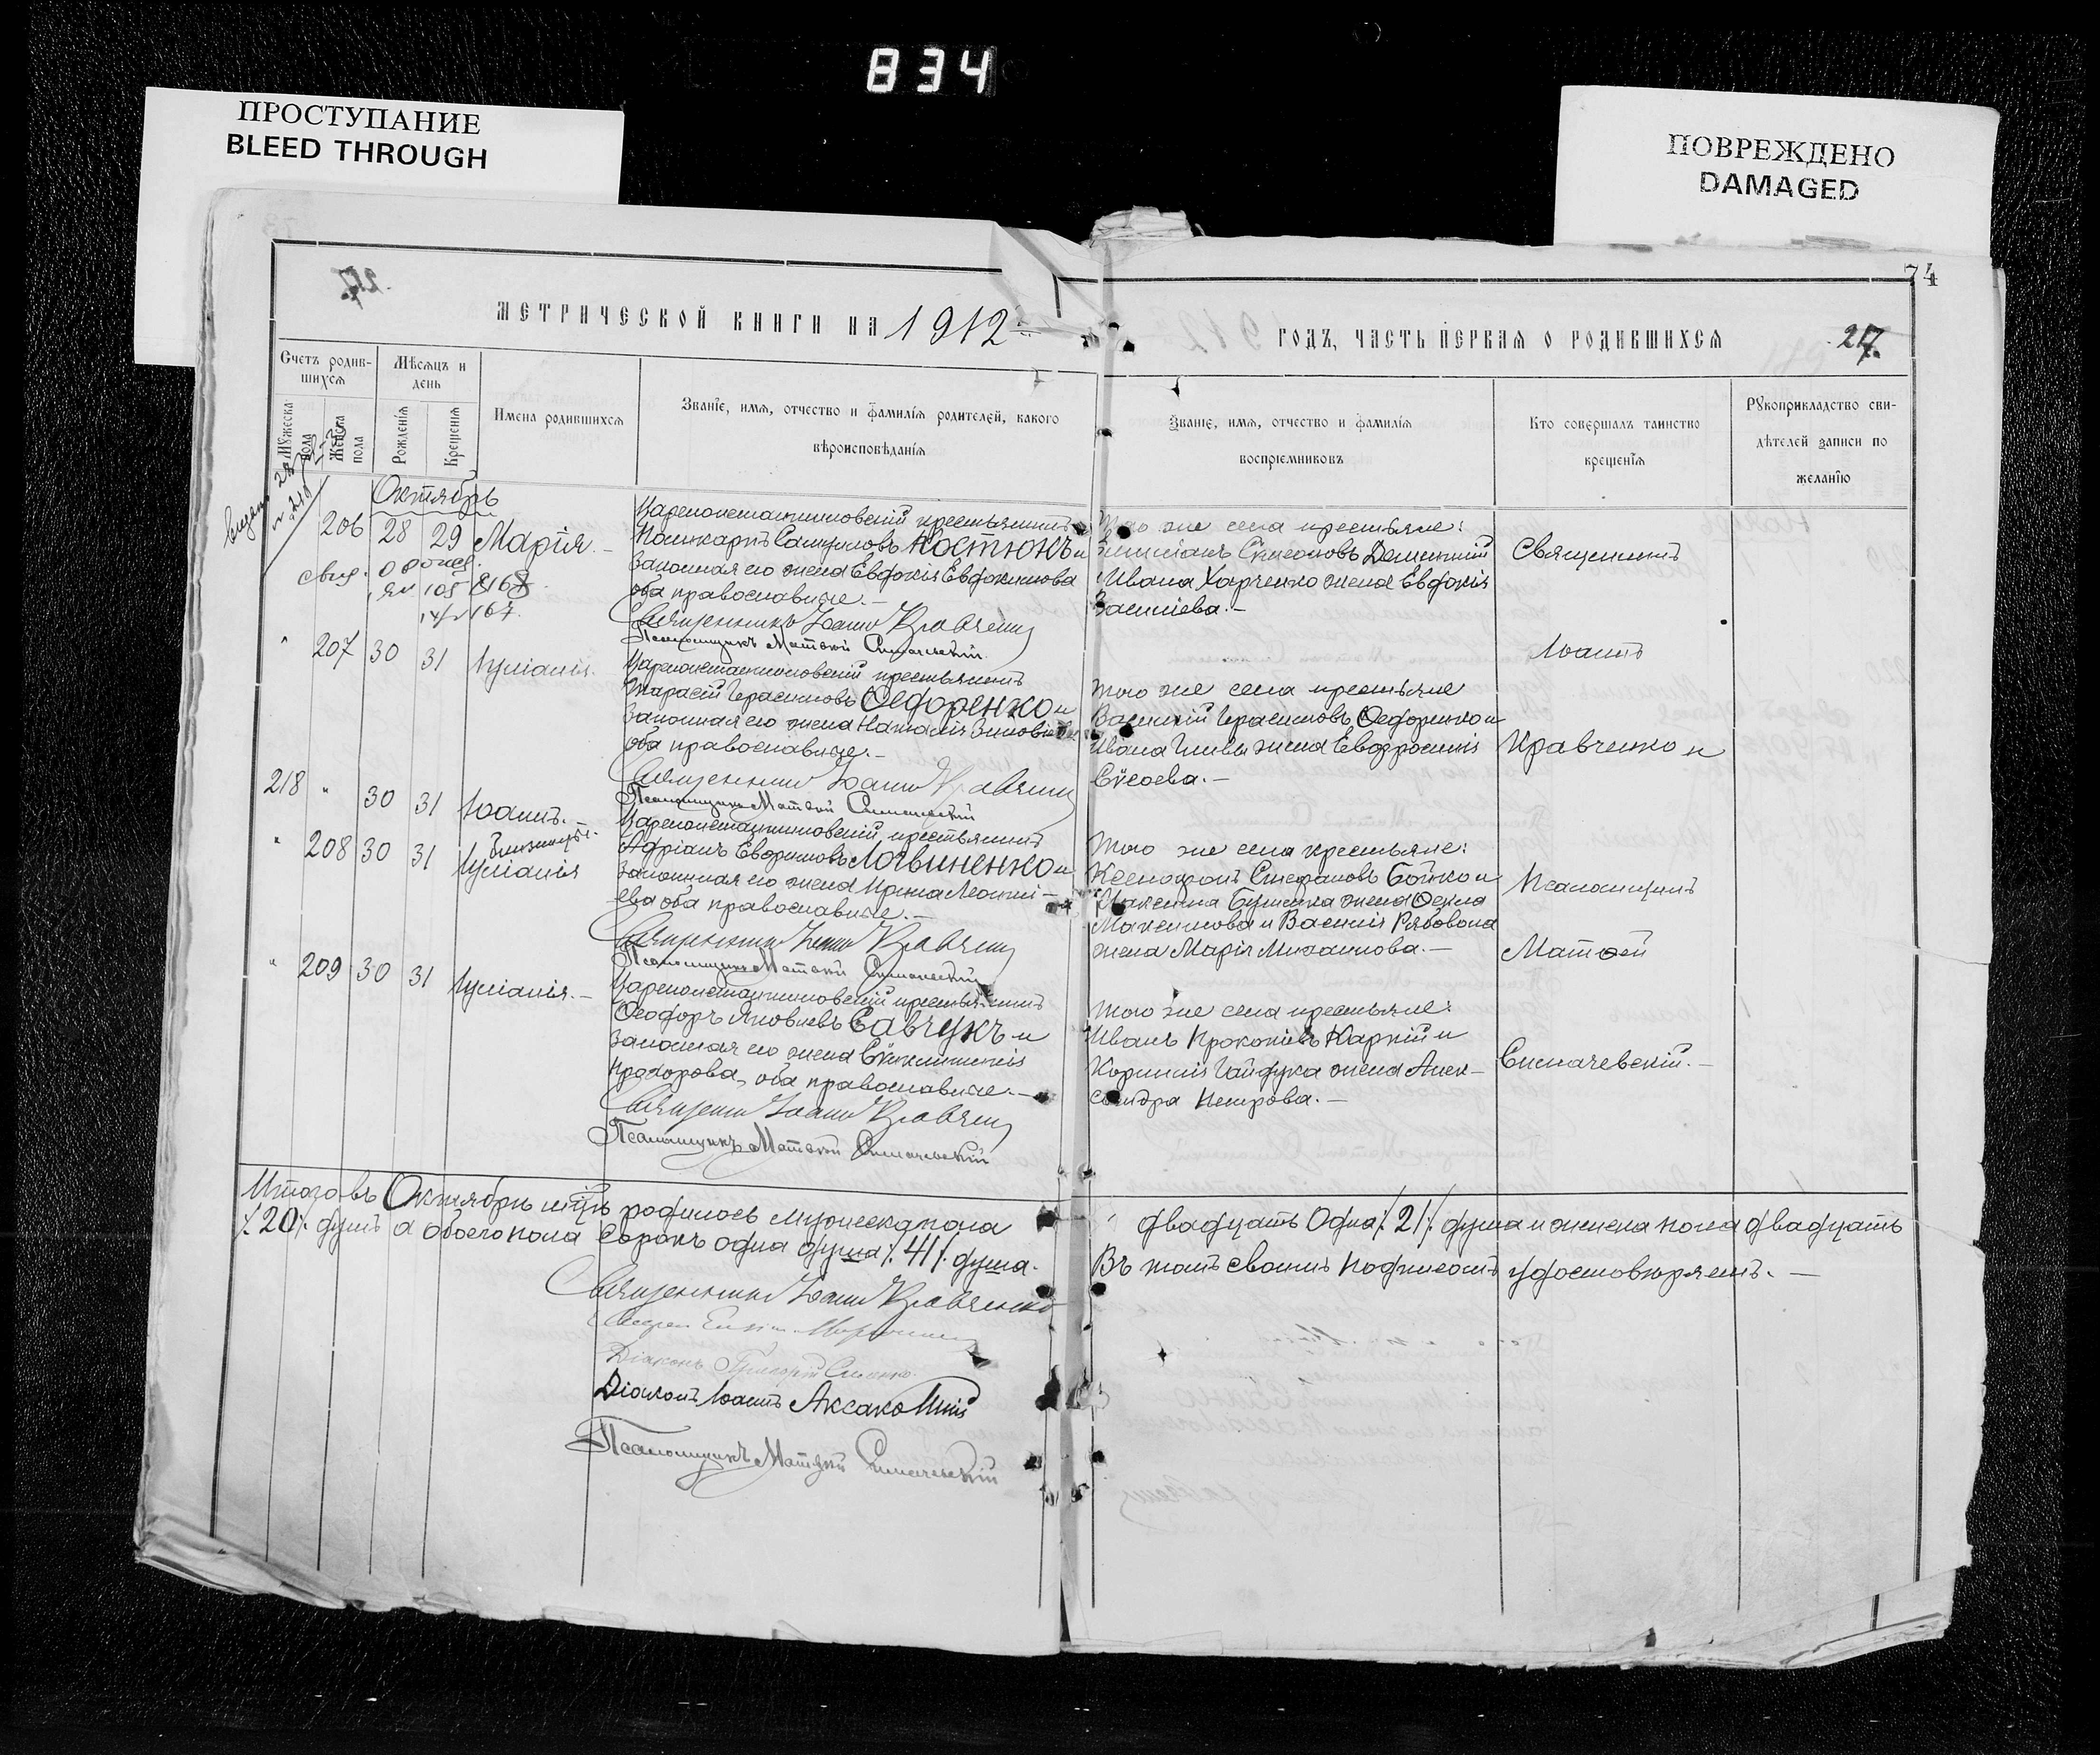 834
ПРОСТУПАНИЕ
BLEED THROUGH
ПОВРЕЖДЕНО
DAMAGED
74
МЕТРИЧЕСКОЙ КНИГИ НА 1912
ГОДЪ, ЧАСТЬ ПЕРВАЯ О РОДИВШИХСЯ
217.
Счетъ родив-
шихся
Мѣсяцъ и
день
Мужеска
пола
Женска
пола
Рожденія
Крещенія
Имена родившихся
Званіе, имя, отчество и фамилія родителей, какого
вѣроисповѣданія
Званіе, имя, отчество и фамилія
воспріемниковъ
Кто совершалъ таинство
крещенія
Рукоприкладство сви-
дѣтелей записи по
желанію
Октябрь
206 28 29 Марія.
Цареконстантиновскій крестьянинъ
Поликарпъ Самуиловъ Костюкъ и
законная его жена Евдокія Евдокимова
оба православные.
Священникъ Іоаннъ Кравченко
Псаломщикъ Матѳей Симачевскій
того же села крестьяне:
Симеоновъ
Ивана Харченко жена Евдокія
Василіева.
" 207 30 31 Іуліанія.
Цареконстантиновскій крестьянинъ
Тарасій Герасимовъ Ѳедоренко и
законная его жена Наталія Зиновіева
оба православные.
Священникъ Іоаннъ Кравченко
Псаломщикъ Матѳей Симачевскій
того же села крестьяне
Василій Герасимовъ Ѳедоренко и
Ивана жена Евфросинія
Сѵсоева.
218 " 30 31 Іоаннъ.
близнецы.
" 208 30 31 Іуліанія
Цареконстантиновскій крестьянинъ
Адріанъ Евфимовъ Логвиненко и
законная его жена Ирина Леонті-
ева оба православные.
Священникъ Іоаннъ Кравченко
Псаломщикъ Матѳей Симачевскій
Того же села крестьяне:
Ксенофонтъ Стефановъ Бойко и
Максима жена Ѳекла
Максимова и Василія Рябовола
жена Марія Михаилова.
" 209 30 31 Іуліанія.
Цареконстантиновскій крестьянинъ
Ѳеодоръ Яковлевъ Савчукъ и
законная его жена Сѵнклитикія
Прохорова, оба православные.
Священникъ Іоаннъ Кравченко
Псаломщикъ Матѳей Симачевскій
Того же села крестьяне:
Иванъ Прокопіевъ Карній и
Корнилія Гайдука жена Алек-
сандра Петрова.
Священникъ
Іоаннъ
Кравченко и
Псаломщикъ
Матѳей
Симачевскій.
Итого въ Октябрѣ мцѣ родилось мужеска пола
двадцать одна /21/ душа и женска пола двадцать
/20/ душъ а обоего пола сорокъ одна душа /41/ душа.
Въ томъ своимъ подписомъ удостовѣряемъ.
Священникъ Іоаннъ Кравченко
Діаконъ Григорій
Діаконъ Іоаннъ
Псаломщикъ Матѳей Симачевскій